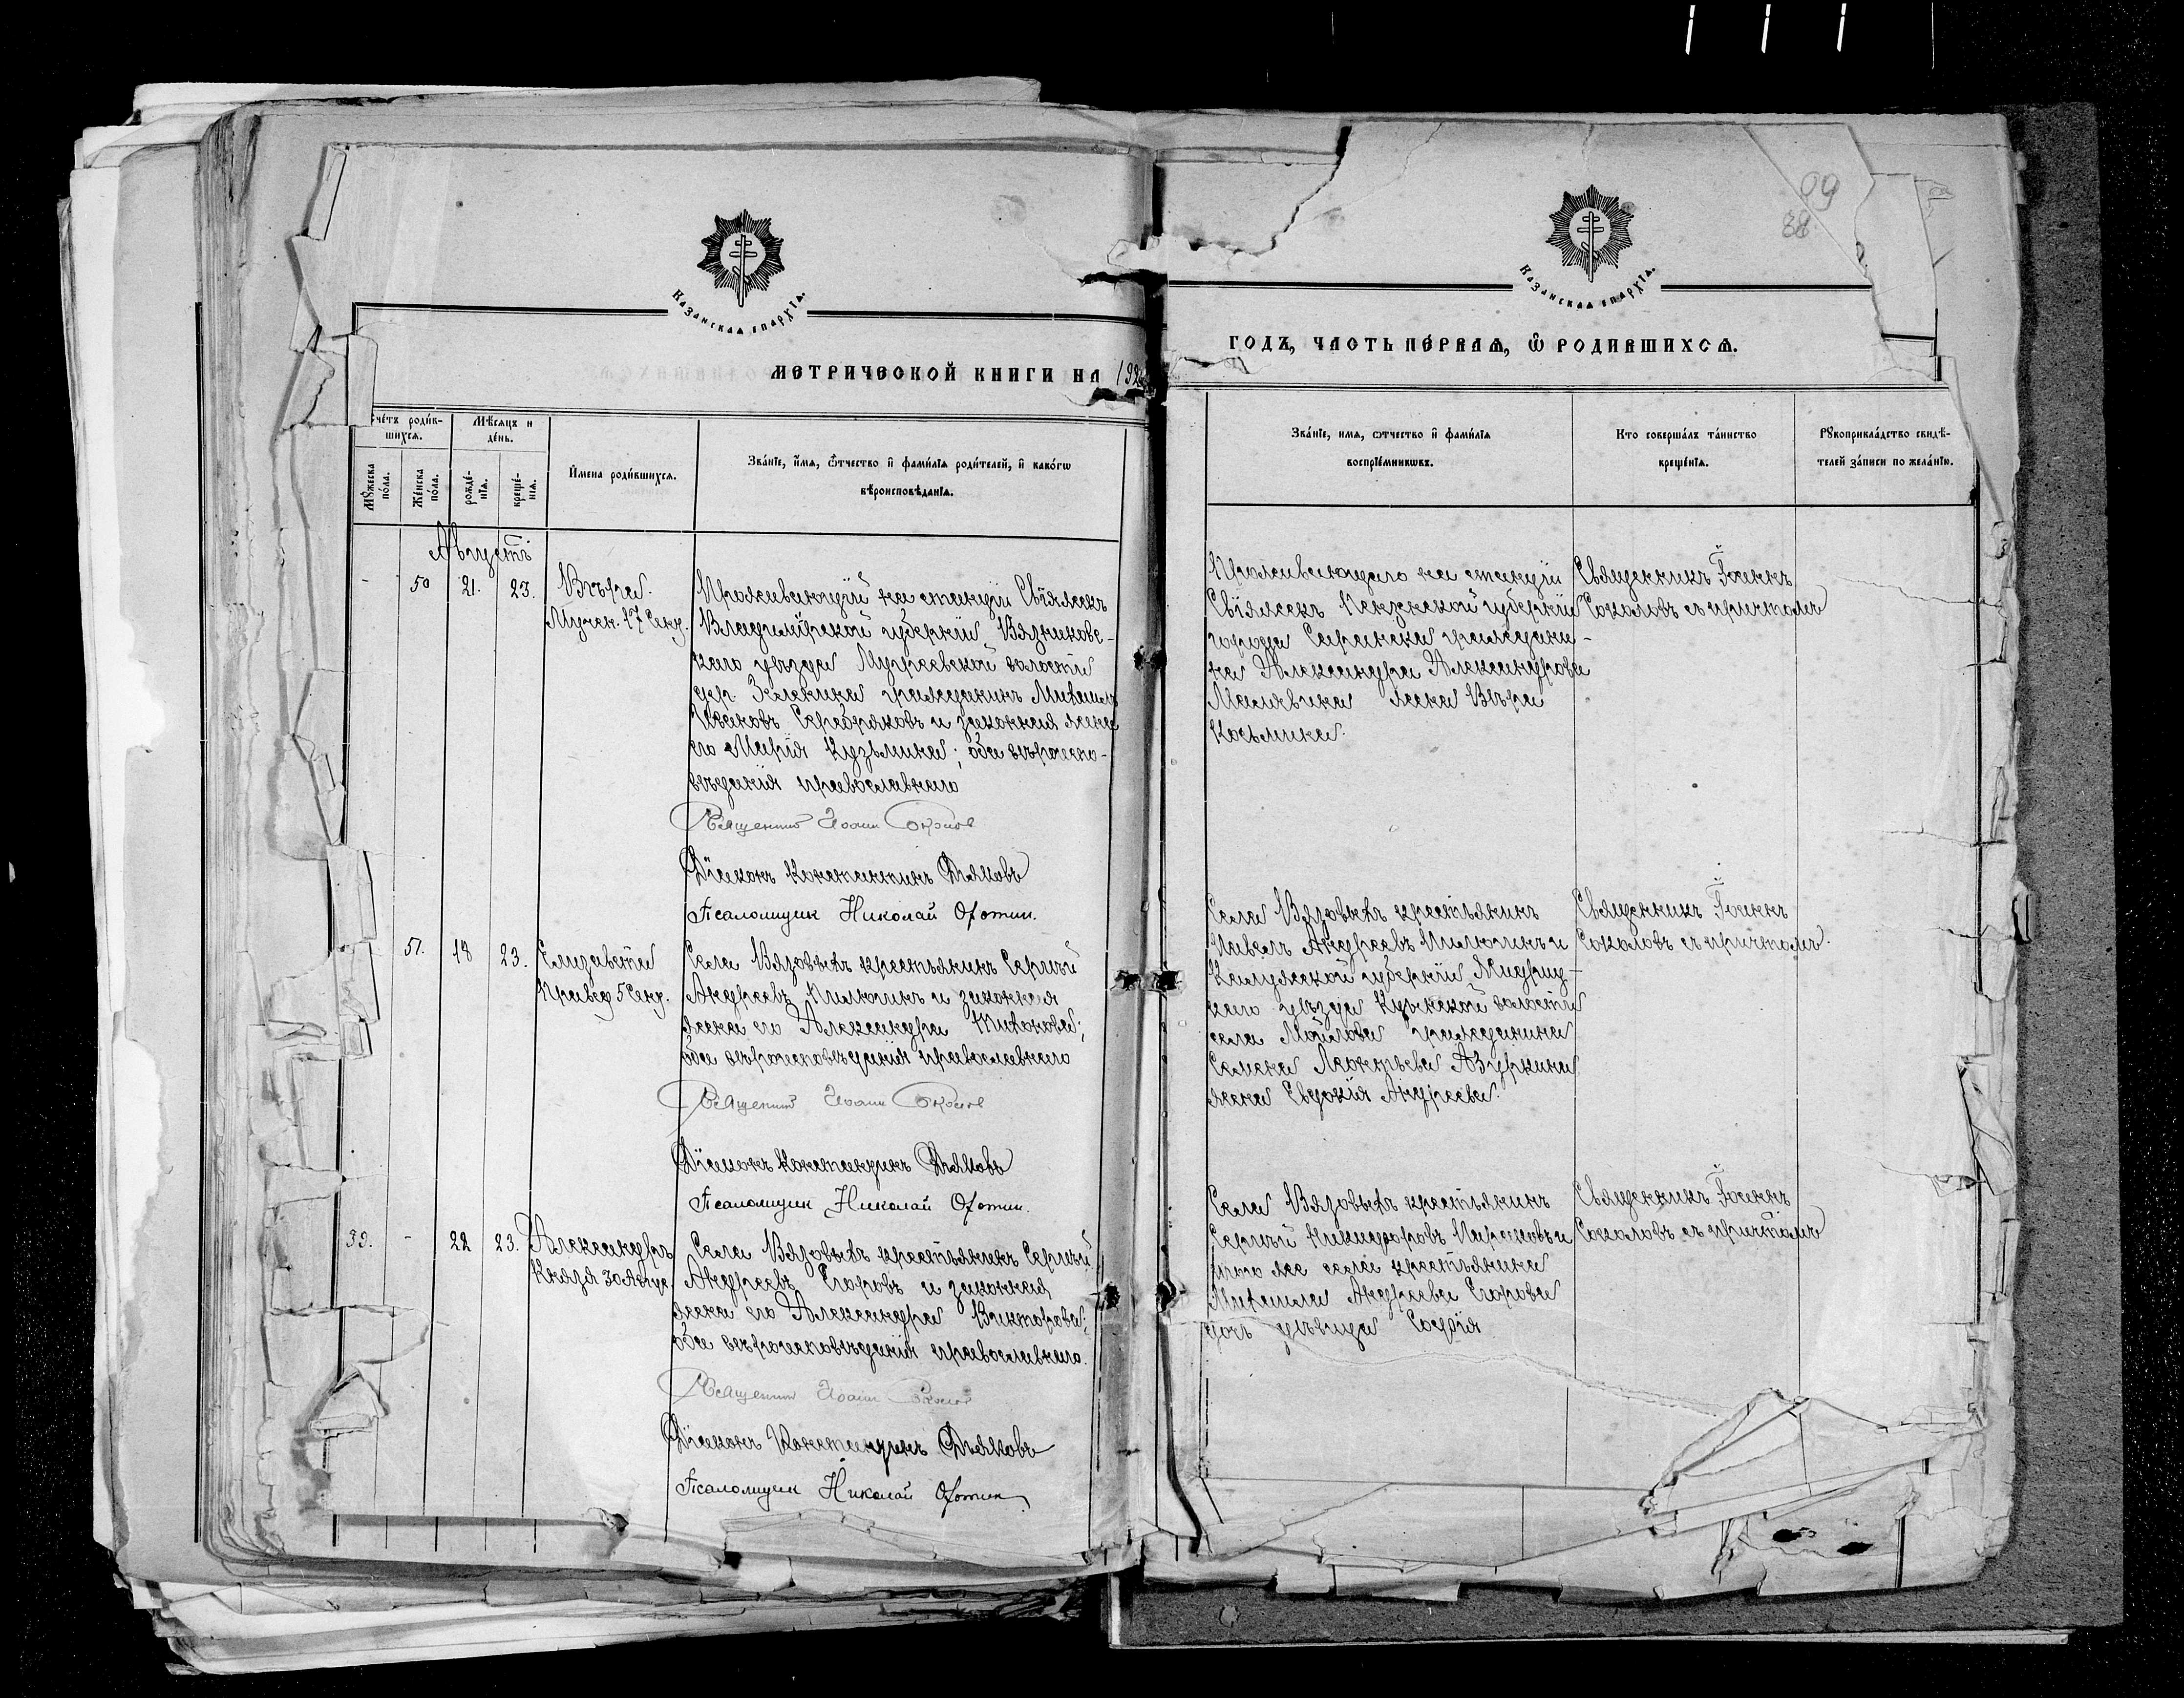 09
38
Казанская епархїа.
Казанская епархїа.
МЕТРИЧЕСКОЙ КНИГИ НА 192
ГОДЪ, ЧАСТЬ ПЕ́РВАЯ, Ѽ РОДИВШИХСЯ.
Сче́тъ роди́в-
шихся.
Мѣ́сяцъ и
де́нь.
Мꙋ́жеска по́ла.
Же́нска по́ла.
рожде́-
нїя.
креще́-
нїя.
И҆мена роди́вшихся.
Зва́нїе, и҆́мя, ѻ҆́тчество и҆ фами́лїя роди́телей, и҆ како́гѡ
вѣ́роисповѣ́данїя.
Зва́нїе, имя, ѻтчество и҆ фами́лїя
воспрїе́мникѡвъ.
Кто соверша́лъ та́инство
креще́нїя.
Рꙋкоприкла́дство свидѣ́-
телей за́писи по жела́нїю.
Августъ
- 50 21. 23. Вѣра.
Мучен. 17 Сент.
Проживающій на станціи Свіяжскъ
Владимірской губерніи, Вязниковс-
каго уѣзда Мугреевской волости
дер. гражданинъ Михаилъ
Ивановъ Серебряковъ и законная жена
его Марія Кузьмина; оба вѣроиспо-
вѣданія православнаго
Священникъ Іоаннъ Соколовъ
Діаконъ Константинъ Дьяковъ
Псаломщик Николай Охотин.
Проживающаго на станціи
Свіяжскъ Пензенской губерніи
города Саранска граждани-
на Александра Александрова
жена Вѣра
Косьмина.
Священникъ Іоаннъ
Соколовъ съ причтомъ
51. 18 23. Елизавета
Правед. 5 Сент.
Села Вязовыхъ крестьянинъ Сергѣй
Андреевъ и законная
жена его Александра Тихонова;
оба вѣроисповѣданія православнаго
Священникъ Іоаннъ Соколовъ
Діаконъ Константинъ Дьяковъ
Псаломщик Николай Охотин.
Села Вязовыхъ крестьянинъ
Павелъ Андреевъ и
Калужской губерніи
каго уѣзда волости
села гражданина
Семена Леонтьева
жена Евдокія Андреева.
Священникъ Іоаннъ
Соколовъ съ причтомъ.
53. - 22 23. Александръ
Князя 30 Авгус.
Села Вязовыхъ крестьянинъ Сергѣй
Андреевъ Егоровъ и законная
жена его Александра Викторова;
оба вѣроисповѣданія православнаго.
Священникъ Іоаннъ Соколовъ
Діаконъ Константинъ Дьяковъ
Псаломщик Николай Охотин
Села Вязовыхъ крестьянинъ
Сергѣй Никифоровъ и
того же села крестьянина
Михаила Андреева Егорова
дочь дѣвица Софія
Священникъ Іоаннъ
Соколовъ съ причтомъ